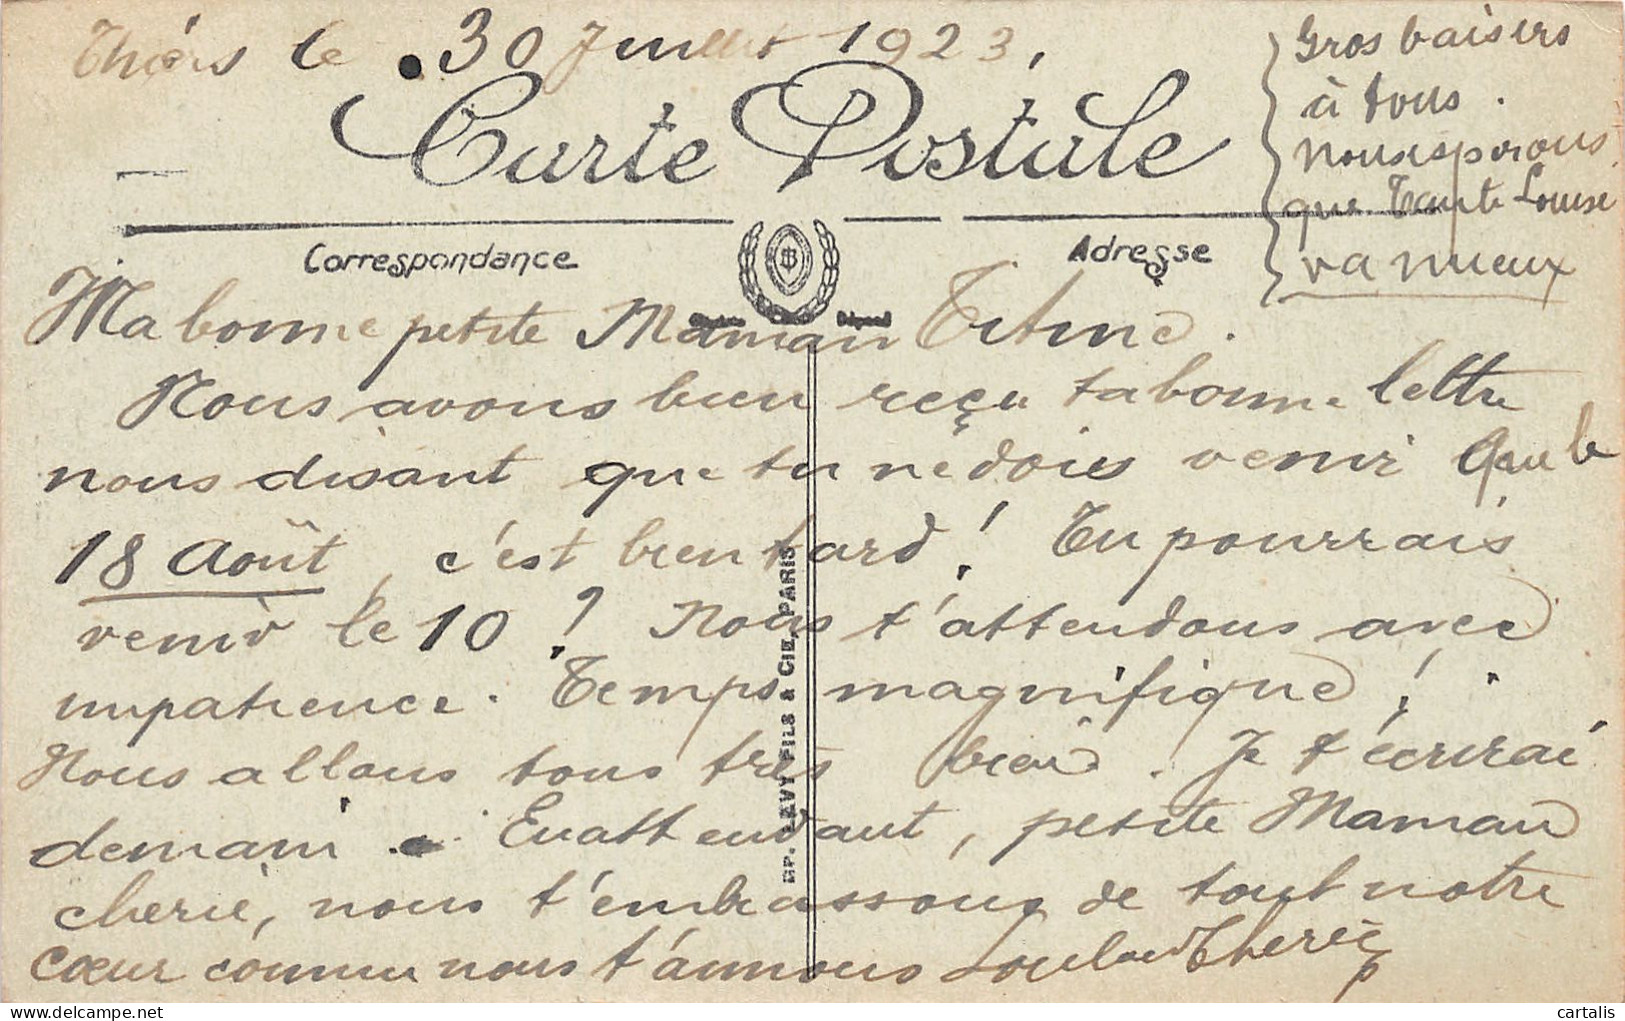 Thiers le 30 Juillet 1923,
Carte Postale
Correspondance
Adresse
Gros baisers
à tous.
nous esperons
que Tante Louise
va mieux
Ma bonne petite Maman Titine.
Nous avons bien reçu ta bonne lettre
nous disant que tu ne dois venir que le
18 Août, c'est bien tard! Tu pourrais
venir le 10? Nous t'attendons avec
impatience. Temps magnifique!
Nous allons tous très bien. Je t'écrirai
demain. En attendant, petite Maman
cherie, nous t'embrassons de tout notre
cœur comme nous t'aimons
LEVY FILS & CIE, PARIS
cartalis